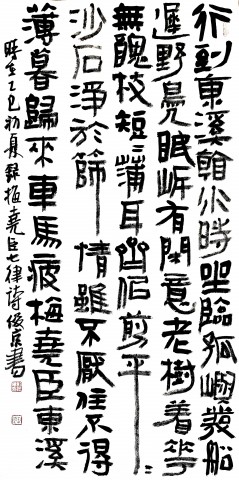 行到東溪看水時坐臨孤嶼發船
遲野鳧眠岸有閑意老樹着花
無醜枝短〻蒲耳齊似剪平〻
沙石淨於篩情雖不厭住不得
薄暮歸來車馬疲梅堯臣東溪
時在乙巳初夏錄梅堯臣七律詩俊房書